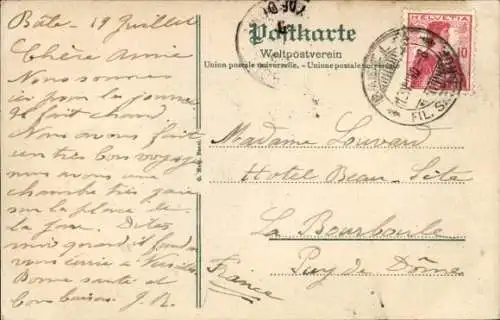 Bâle - 19 Juillet
Chère Amie
Nous sommes
ici pour la journée
il fait chaud
Nous avons fait
un très bon voyage
nous avons une
chambre très gaie
sur la place de
la gare. Dites
moi quand il faut
vous écrire à
Bonne santé et
bons baisers J. R.
Postkarte
Weltpostverein
Union postale universelle. - Unione postale universale.
HELVETIA
10
FIL. S
Madame Louvard
Hotel Beau-Site
La Bourboule
Puy de Dôme
France